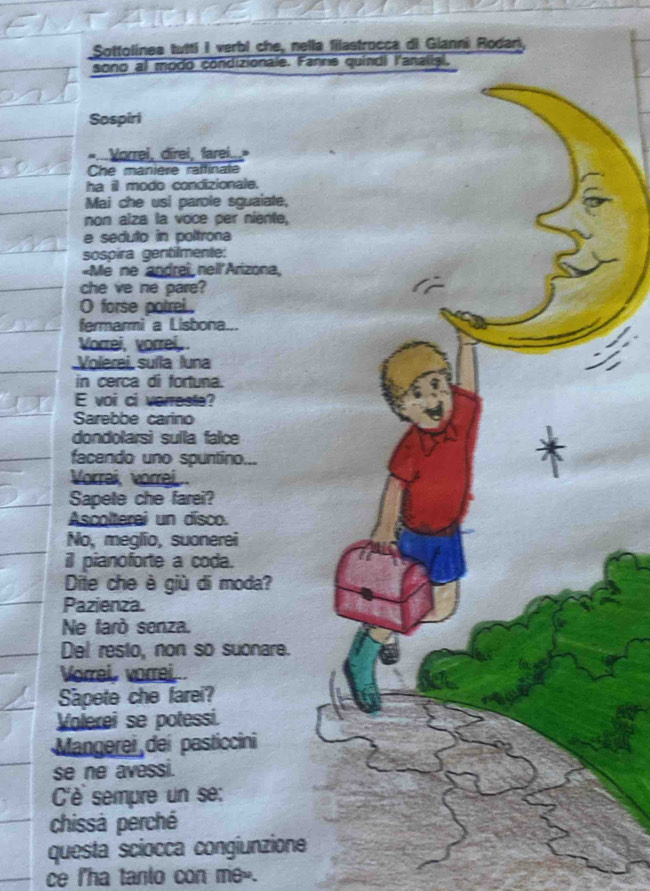 Sottolinea tutti i verbi che, nella filastrocca di Gianni Rodari,
sono al modo condizionale. Fanne quindi l'analisi.
Sospiri
«...Vorrei, direi, farei...»
Che maniere raffinate
ha il modo condizionale.
Mai che usi parole sguaiate,
non alza la voce per niente,
e seduto in poltrona
sospira gentilmente:
«Me ne andrei nell'Arizona,
che ve ne pare?
O forse potrei
fermarmi a Lisbona...
Vorrei, vorrei...
Volerei sulla luna
in cerca di fortuna.
E voi ci verreste?
Sarebbe carino
dondolarsi sulla falce
facendo uno spuntino...
Vorrei, vorrei...
Sapete che farei?
Ascolterei un disco.
No, meglio, suonerei
il pianoforte a coda.
Dite che è giù di moda?
Pazienza.
Ne farò senza.
Del resto, non so suonare.
Vorrei, vorrei...
Sapete che farei?
Volerei se potessi.
Mangerei dei pasticcini
se ne avessi.
C'è sempre un se:
chissà perché
questa sciocca congiunzione
ce l'ha tanto con me».